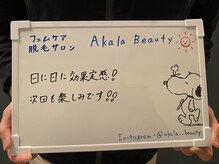 フェムケア
脱毛サロン
Akala Beauty
日に日に効果実感!!
次回も楽しみです!!
Instagram・@akala..beauty